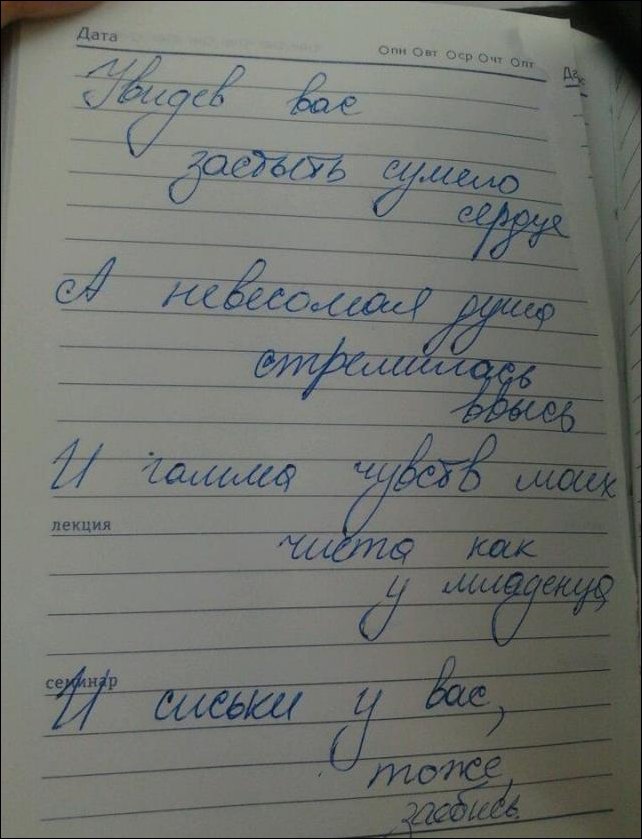 Дата
Опн Овт Оср Очт Опт
Увидев вас
застыть сумело
сердце
А невесомая душа
стремилась
ввысь
И гамма чувств моих
лекция
чиста как
у младенца
семинар
И сиськи у вас,
тоже,
заебись.